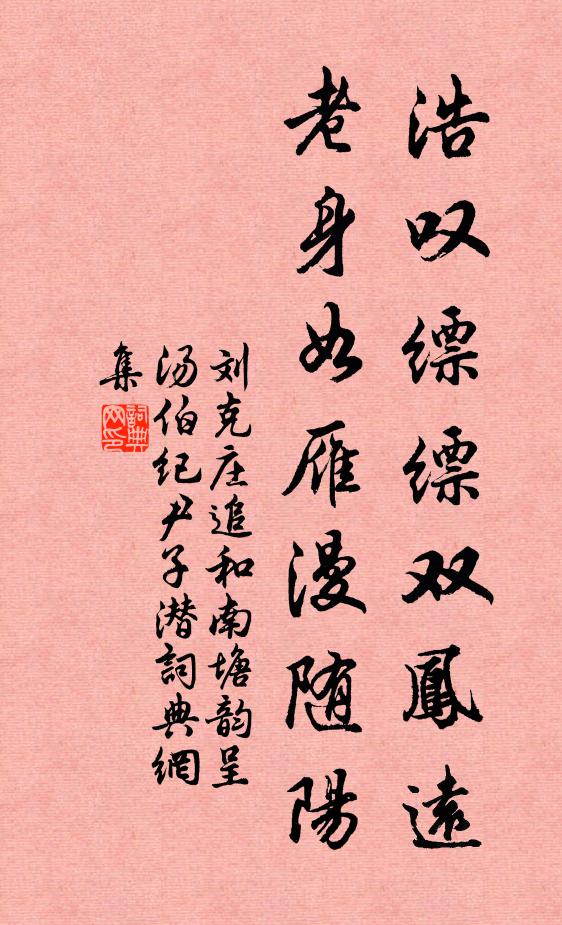 浩叹缥缥双鳳遠
老身如雁漫随陽
刘克庄追和南塘韵呈
汤伯纪尹子潜詞典網
集
詞典
网印